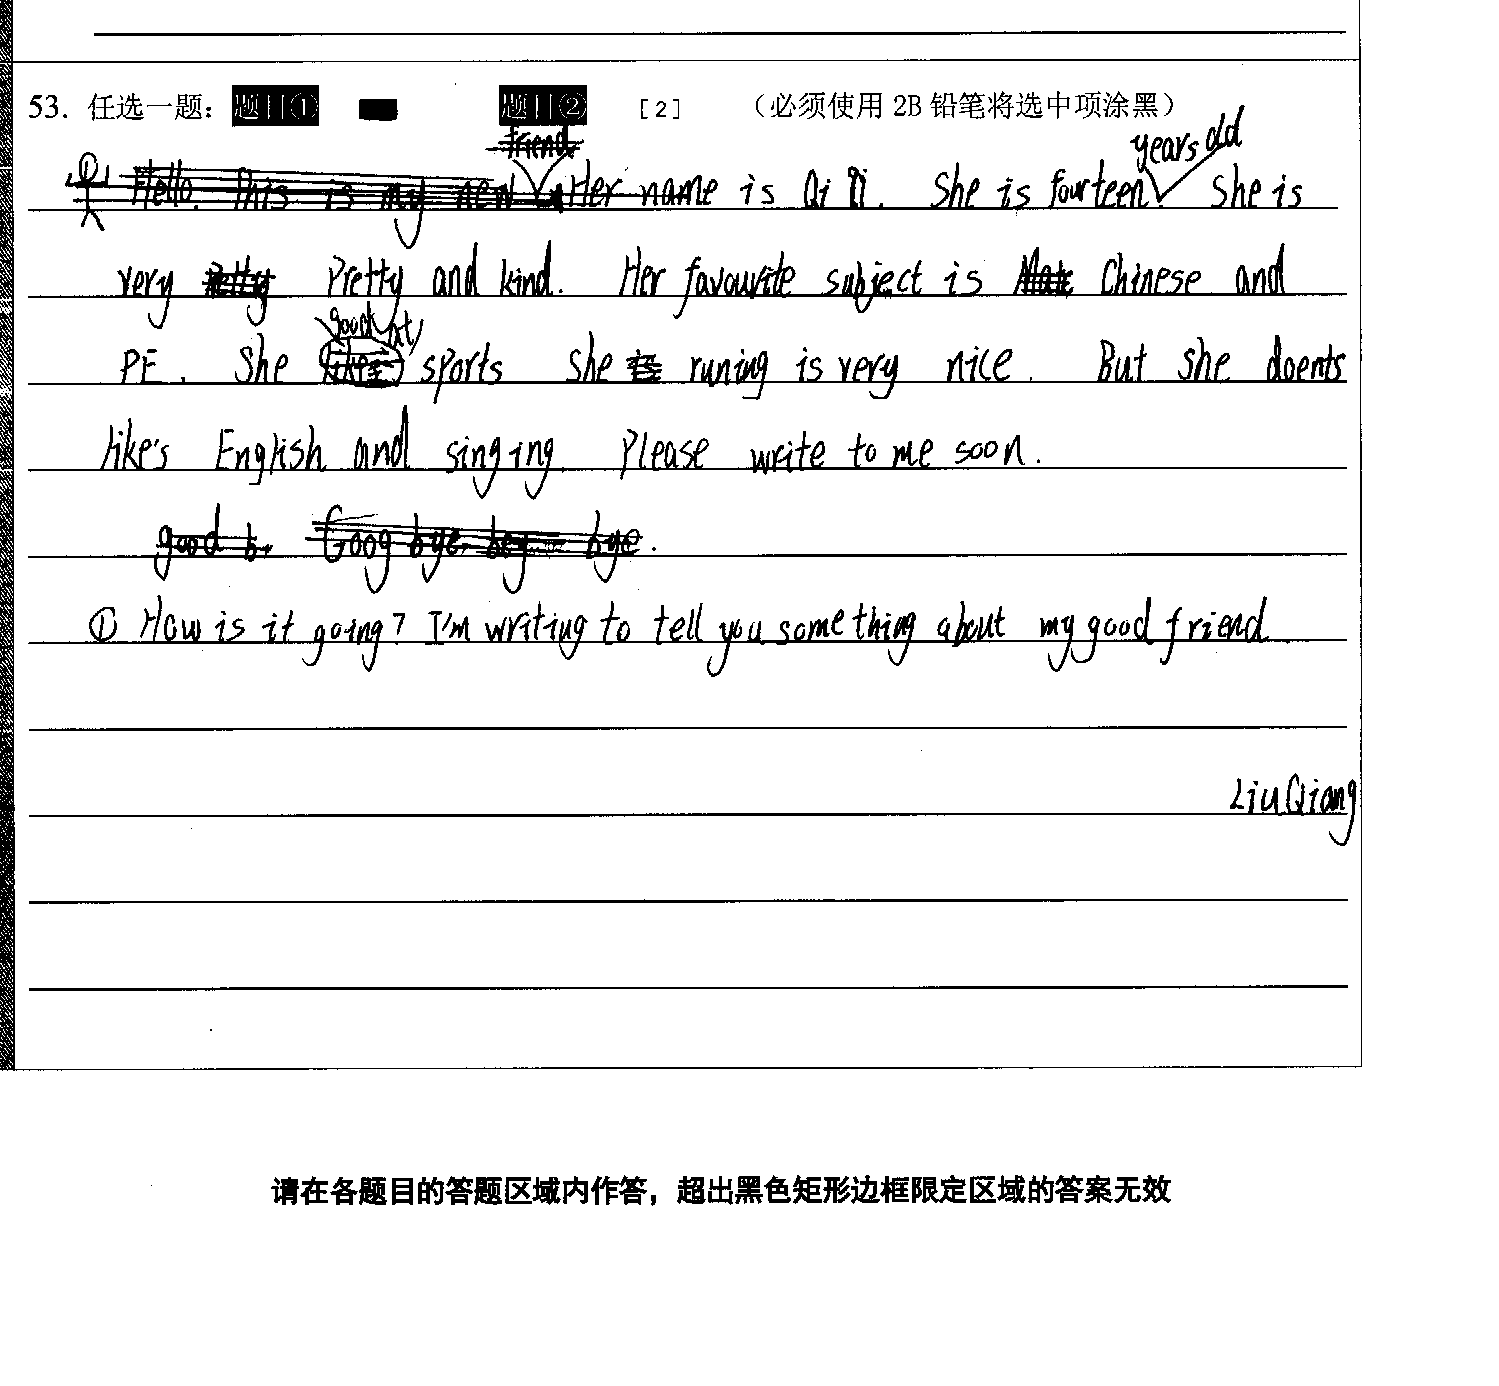 53. 任选一题: 题目① 题目② [2] (必须使用 2B 铅笔将选中项涂黑)
friend years old
① Hello. This is my new Her name is Qi Qi. She is fourteen. She is
very Pretty and kind. Her favourite subject is Chinese and
good at
PE. She likes sports She is runing is very nice. But she doents
like's English and singing. Please write to me soon.
good b. Goog bye. bye.
① How is it going? I'm writing to tell you something about my good friend
Liu Qiang
请在各题目的答题区域内作答，超出黑色矩形边框限定区域的答案无效